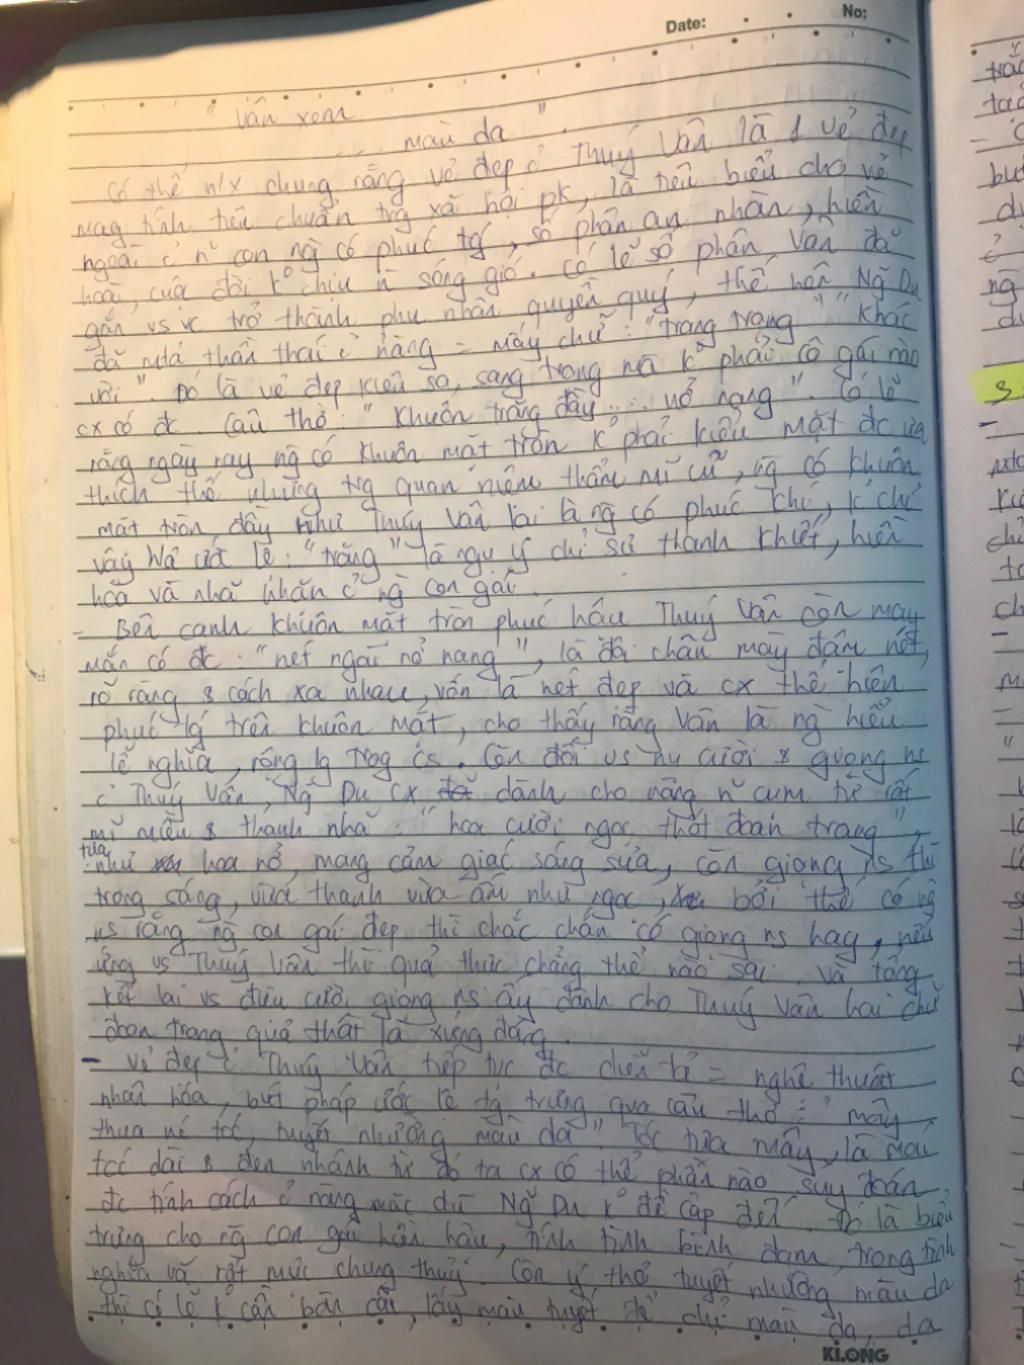 Date: No:
"Vân xem
... màu da".
Có thể n/x chung rằng vẻ đẹp củ Thuý Vân là 1 vẻ đẹp
mag tính tiêu chuẩn trg xã hội pk, là tiêu biểu cho vẻ
ngoài c' n~ con ng` có phúc tg', số phận an nhàn, hiền
hoà, cuộc đời k° chịu n` sóng gió. Có lẽ số phận Vân đã
gắn vs vc trở thành phu nhân quyền quý, thế nên Ng~ Du
đã miêu tả thần thái c' nàng = mấy chữ: "trang trọng" "khác
vời". Đó là vẻ đẹp kiêu sa, sang trọng mà k° phải cô gái nào
cx có đc. Câu thơ: "Khuôn trăng đầy ... nở nang". Có lẽ
rằng ngày nay ng` có khuôn mặt tròn k° phải kiểu mặt đc ưa
thích thế nhưng trg quan niệm thẩm mĩ cũ, ng` có khuôn
mặt tròn đầy như Thuý Vân lại là ng` có phúc khí, k° chỉ
vậy h/a ước lệ: "trăng" là ngụ ý chỉ sự thanh khiết, hiền
hoà và nhã nhặn c' ng` con gái.
- Bên cạnh khuôn mặt tròn phúc hậu Thuý Vân còn may
mắn có đc: "nét ngài nở nang", là đôi chân mày đậm nét,
rõ ràng & cách xa nhau, vốn là nét đẹp và cx thể hiện
phúc tg' trên khuôn mặt, cho thấy rằng Vân là ng` hiểu
lễ nghĩa, rộng lg trog c/s. Còn đối vs nụ cười & giọng ns
c' Thuý Vân, Ng~ Du cx dành cho nàng n~ cụm từ rất
mĩ miều & thanh nhã: "hoa cười ngọc thốt đoan trang",
tựa như hoa nở, mang cảm giác sáng sủa, còn giọng ns thì
trong sáng, vừa thanh vừa ấm như ngọc, bởi thế có ng`
ns rằng ng` con gái đẹp thì chắc chắn có giọng ns hay, nếu
ứng vs Thuý Vân thì quả thực chẳng thể nào sai. Và tổng
kết lại vs điệu cười, giọng ns ấy dành cho Thuý Vân hai chữ
đoan trang quả thật là xứng đáng.
- Vẻ đẹp c' Thuý Vân tiếp tục đc diễn tả = nghệ thuật
nhân hóa, bút pháp ước lệ tg' trưng qua câu thơ: "mây
thua nc' tóc, tuyết nhường màu da" Tóc tựa mây, là mái
tóc dài & đen nhánh từ đó ta cx có thể phần nào suy đoán
đc tính cách c' nàng mặc dù Ng~ Du k° đề cập đến. Đó là biểu
trưng cho ng` con gái hiền hậu, tính tình bình đạm, trọng tình
nghĩa và rất mực chung thuỷ. Còn ý thơ tuyết nhường màu da
thì có lẽ k° cần bàn cãi, lấy màu tuyết để chỉ màu da, da
KLONG